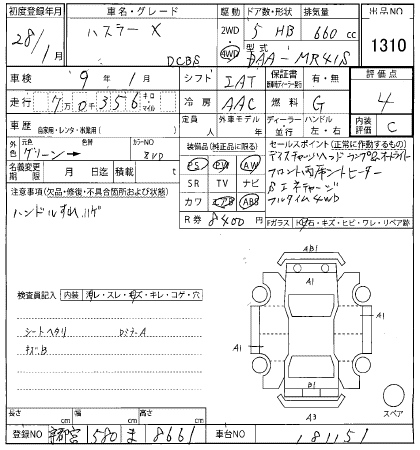 初度登録年月 車名・グレード 駆動 ドア数・形状 排気量 出品NO
28/1月 ハスラー X DCBS 2WD 4WD 5 HB 660 cc 1310
型式 DAA-MR41S
車検 9年1月 シフト IAT 保証書 有・無 評価点
走行 7万0千356 キロ マイル 冷房 AAC 燃料 G 4
車歴 自家用・レンタ・
外車モデル 年 ディーラー 並行 ハンドル 左・右 内装評価 C
外色 元色 色替 カラーNO
グリーン→
名義変更期限 月 日迄 積載 t
装備品(純正品に限る)
PS PW AW
SR TV ナビ
カワ エアB ABS
R券 8400円
セールスポイント(正常に作動するもの)
フロント両席シートヒーター
Sエネチャージ
フルタイム4WD
Fガラス 石・キズ・ヒビ・ワレ・リペア跡
注意事項(欠品・修復・不具合箇所および状態)
検査員記入 内装 レ・スレ・キズ・キレ・コゲ・穴
シートヘタリ
キズB
AB1
A1
A1
A1
B1
A3
スペア
長さ cm 幅 cm 高さ cm
登録NO 580 ま 8661 車台NO 181151